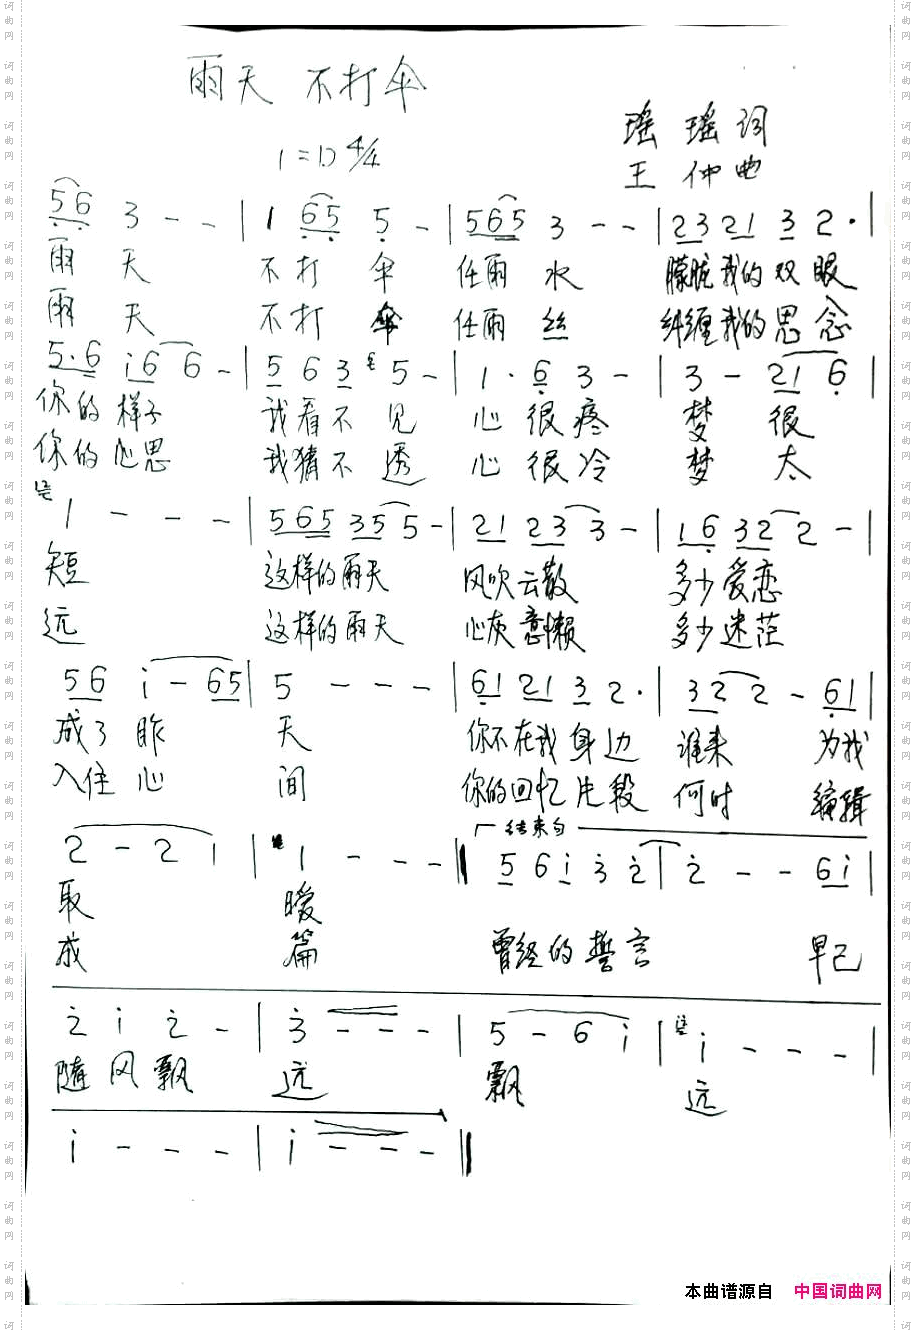 雨天 不打伞
1=D 4/4
瑶瑶词
王仲曲
5 6 3 - - | 1 6 5 5 - | 5 6 5 3 - - | 2 3 2 1 3 2 · |
雨 天 不打 伞 任雨 水 朦胧我的双眼
雨 天 不打 伞 任雨 丝 纠缠我的思念
5 · 6 i 6 6 - | 5 6 3 5 - | 1 · 6 3 - | 3 - 2 1 6 |
你的样子 我看不见 心很疼 梦 很
你的心思 我猜不透 心很冷 梦 太
1 - - - | 5 6 5 3 5 5 - | 2 1 2 3 3 - | 1 6 3 2 2 - |
短 这样的雨天 风吹云散 多少爱恋
远 这样的雨天 心灰意懒 多少迷茫
5 6 i - 6 5 | 5 - - - | 6 1 2 1 3 2 · | 3 2 2 - 6 1 |
成了昨 天 你不在我身边 谁来 为我
入住心 间 你的回忆片段 何时 编辑
结束句
2 - 2 1 | 1 - - - ‖ 5 6 i 3 2 | 2 - - 6 i |
取 暖
成 篇 曾经的誓言 早已
2 i 2 - | 3 - - - | 5 - 6 i | i - - - |
随风飘 远 飘 远
i - - - | i - - - ‖
本曲谱源自 中国词曲网